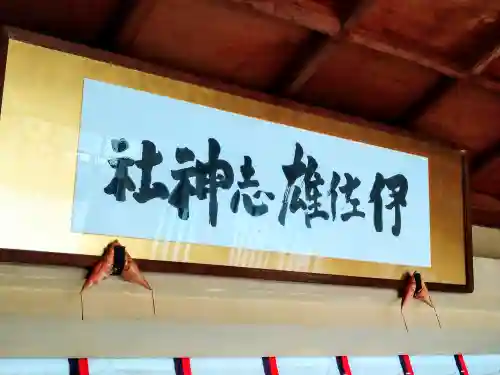 伊佐雄志神社